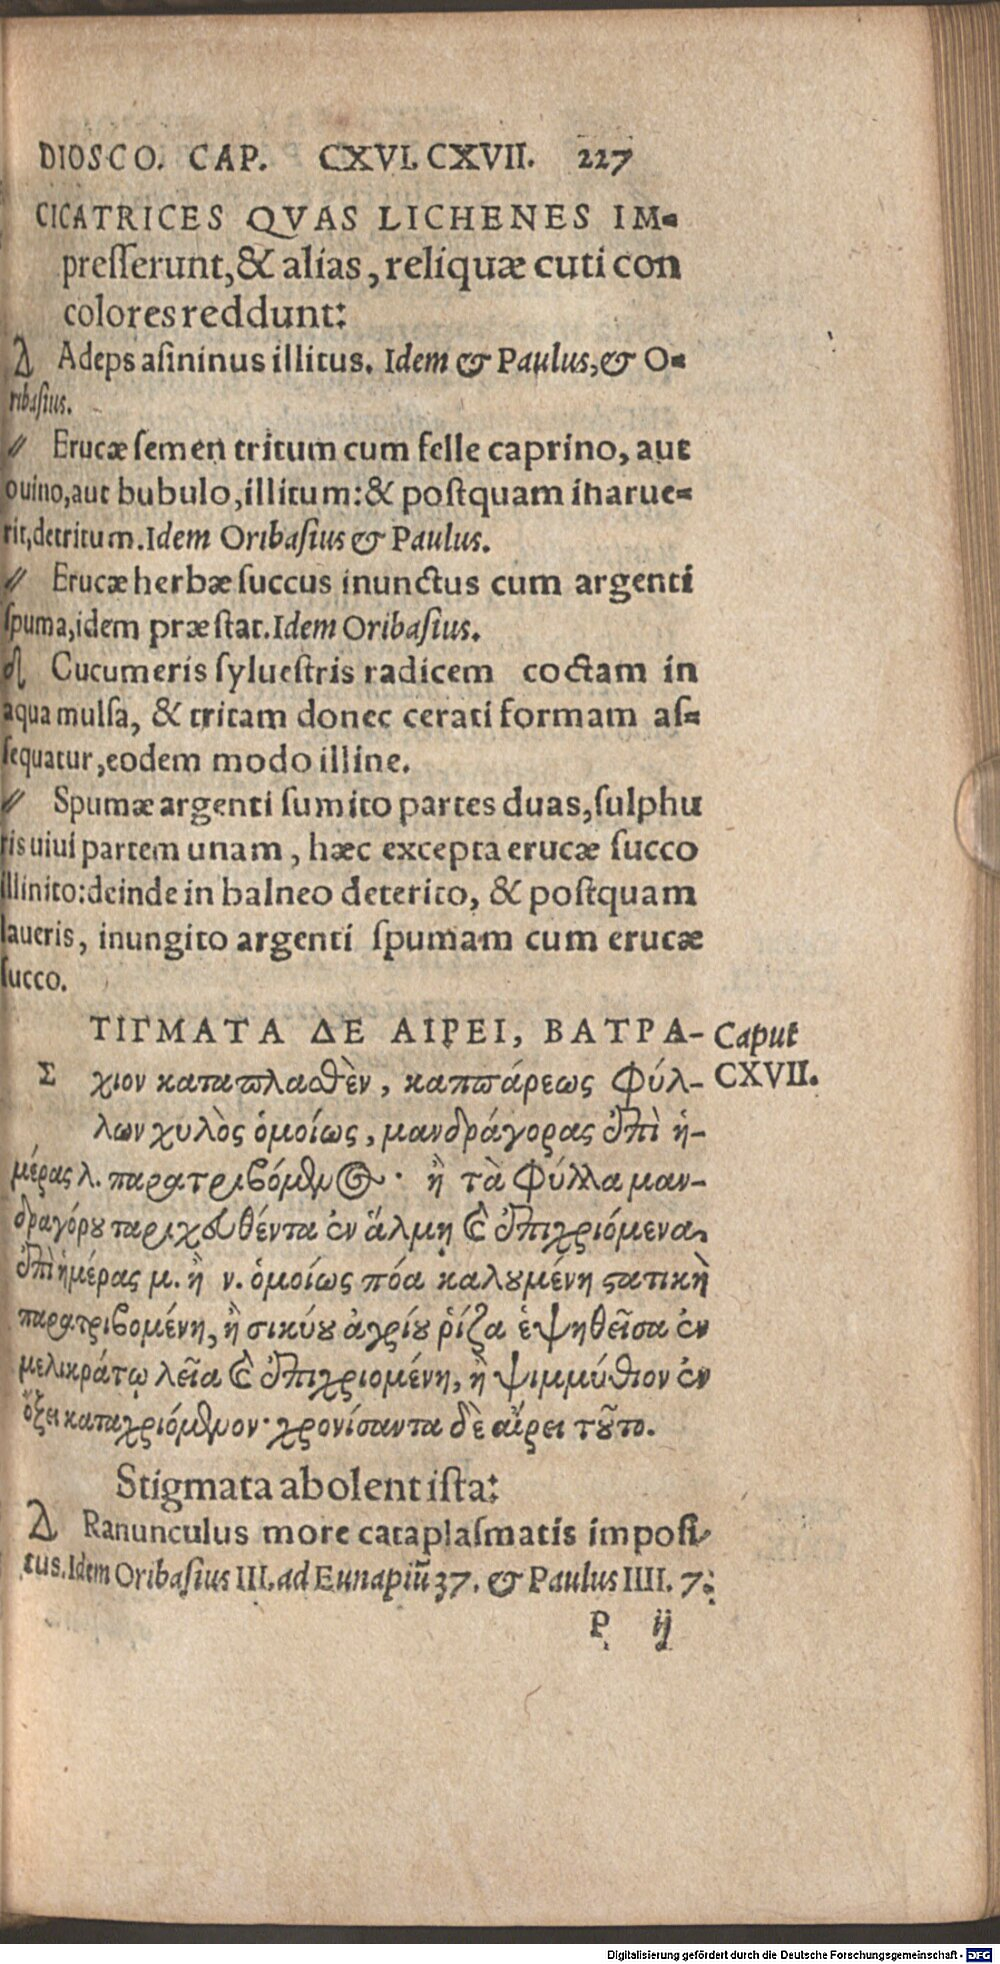 DIOSCO. CAP. CXVI. CXVII. 227
CICATRICES QVAS LICHENES IM-
presserunt, & alias, reliquæ cuti con
colores reddunt:
Δ Adeps asininus illitus. Idem & Paulus, & O-
ribasius.
〃 Erucæ semen tritum cum felle caprino, aut
ouino, aut bubulo, illitum: & postquam inarue-
rit, detritum. Idem Oribasius & Paulus.
〃 Erucæ herbæ succus inunctus cum argenti
spuma, idem præstat. Idem Oribasius.
Cucumeris syluestris radicem coctam in
aqua mulsa, & tritam donec cerati formam as-
sequatur, eodem modo illine.
〃 Spumæ argenti sumito partes duas, sulphu
ris uiui partem unam, hæc excepta erucæ succo
illinito: deinde in balneo deterito, & postquam
laueris, inungito argenti spumam cum erucæ
succo.
ΤΙΓΜΑΤΑ ΔΕ ΑΙΡΕΙ, ΒΑΤΡΑ- Caput
Σ χιον καταπλασθὲν, καππάρεως φύλ- CXVII.
λων χυλὸς ὁμοίως, μανδράγορας ἐπὶ ἡ-
μέρας λ. παρατριβόμενος· ἢ τὰ φύλλα μαν-
δραγόρου ταριχευθέντα ἐν ἅλμῃ καὶ ἐπιχριόμενα,
ἐπὶ ἡμέρας μ. ἢ ν. ὁμοίως πόα καλουμένη στατικὴ
παρατριβομένη, ἢ σικύου ἀγρίου ῥίζα ἑψηθεῖσα ἐν
μελικράτῳ λεῖα καὶ ἐπιχριομένη, ἢ ψιμμύθιον ἐν
ὄξει καταχριόμενον· χρονίσαντα δὲ αἴρει τοῦτο.
Stigmata abolent ista:
Δ Ranunculus more cataplasmatis imposi-
tus. Idem Oribasius III. ad Eunapiū 37. & Paulus IIII. 7.
P ij
Digitalisierung gefördert durch die Deutsche Forschungsgemeinschaft - DFG